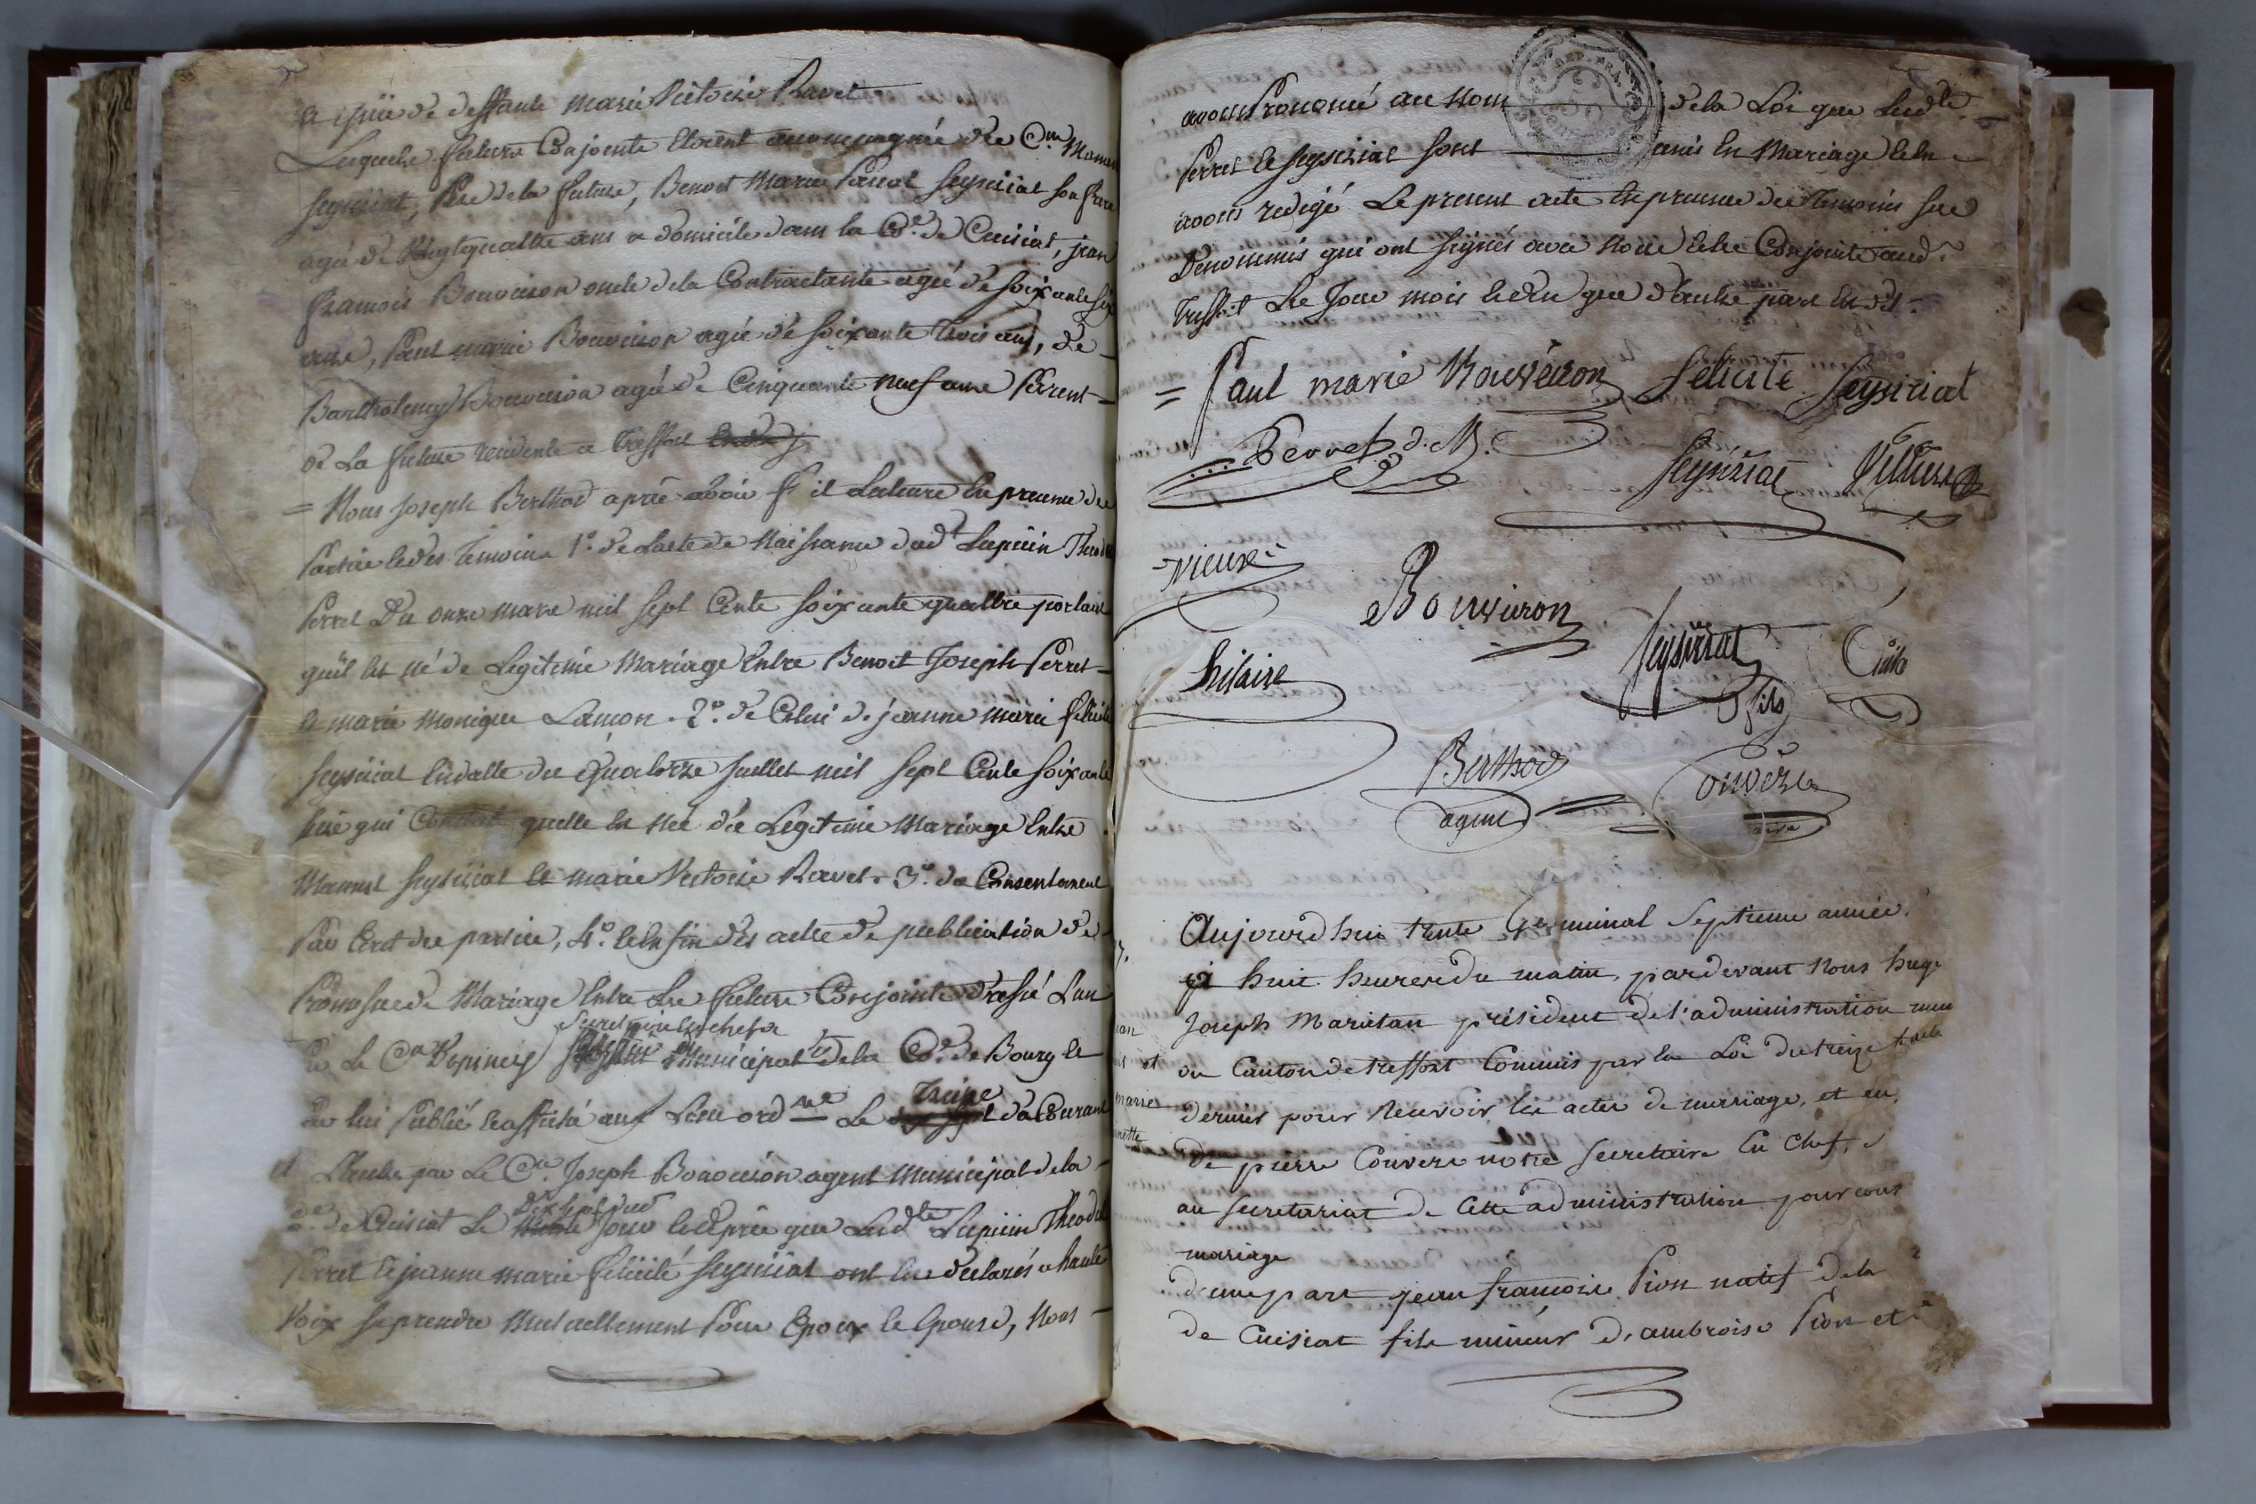 de deffante marie Victoire Ravet.
Lesquels futurs Conjoints Etoient accompagnés des C.en Mamert
Seysiriat, Pere de la future, Benoit Marie Pascal Seysiriat son frere
agé de Vingtquattre ans a domicile dans la C.e de Cuisiat, jean
francois Bouveiron oncle de la Contractante agé de soixante six
ans, Paul marie Bouveiron agé de soixante trois ans, de
Barthelemy Bouveiron agé de Cinquante neuf ans Parents
de La future residents a Treffort
= Nous Joseph Berthod après avoir f it Lecture En presence des
Parties et des temoins 1.o de L'acte de Naissance dud.t Lupicin Theodule
Perret Du onze mars mil sept Cents soixante quattre portant
qu'il est né de Legitime Mariage Entre Benoit Joseph Perret
et marie Monique Lamon. 2.o de Celui de jeanne marie félicité
Seysiriat Endatte du Quatorze Juillet mil sept Cents soixante
qui Constat quelle Est Née de Legitime Mariage Entre
Mamert Seysiriat et marie Victoire Ravet. 3.o du Consentement
Par Ecrit des parties, 4.o et enfin des actes de publication de
Promesse de Mariage Entre Les futurs Conjoints Dressé L'un
secretaire en chef
Par Le C.en Municipal de la C.e de Bourg et
Treize
Par lui Publié et affiché aux Lieu ord.re Le du Courant
et L'autre par Le C.en Joseph Bouveiron agent Municipal de la
C.e de Cuisiat Le Jour et après que Lesd.ts Lupicin Theodule
Perret et jeanne marie félicité Seysiriat ont Eu declarés a haute
Voix se prendre Mutuellement Pour Epoux et Epouse, Nous
avons Prononcé au Nom de la Loi que Lesd.ts
Perret et Seysiriat sont unis En Mariage et En
avons redigé Le present acte En presence des temoins sus
Denommés qui ont signés avec Nous et les Conjoints aud.t
Treffort Les Jour mois et an que d'autre part En dit.
= Paul marie Bouveiron félicité Seysiriat
Perret d.M.
Seysiriat
Vieux
Bouveiron
hilaire Seysiriat
fils
Berthod
agent
Aujourd'hui trente Germinal Septieme année
huit heures du matin, pardevant Nous huge
Joseph Marietan président de l'administration mun
du Canton de treffort Commis par la Loi du treize
dernier pour Recevoir les actes de mariage, et en
de pierre Convers notre Secretaire En Chef,
au Secretariat de Cette administration pour
mariage
d'une part jean françois Pion natif de la
de Cuisiat fils mineur d'ambroise Pion et